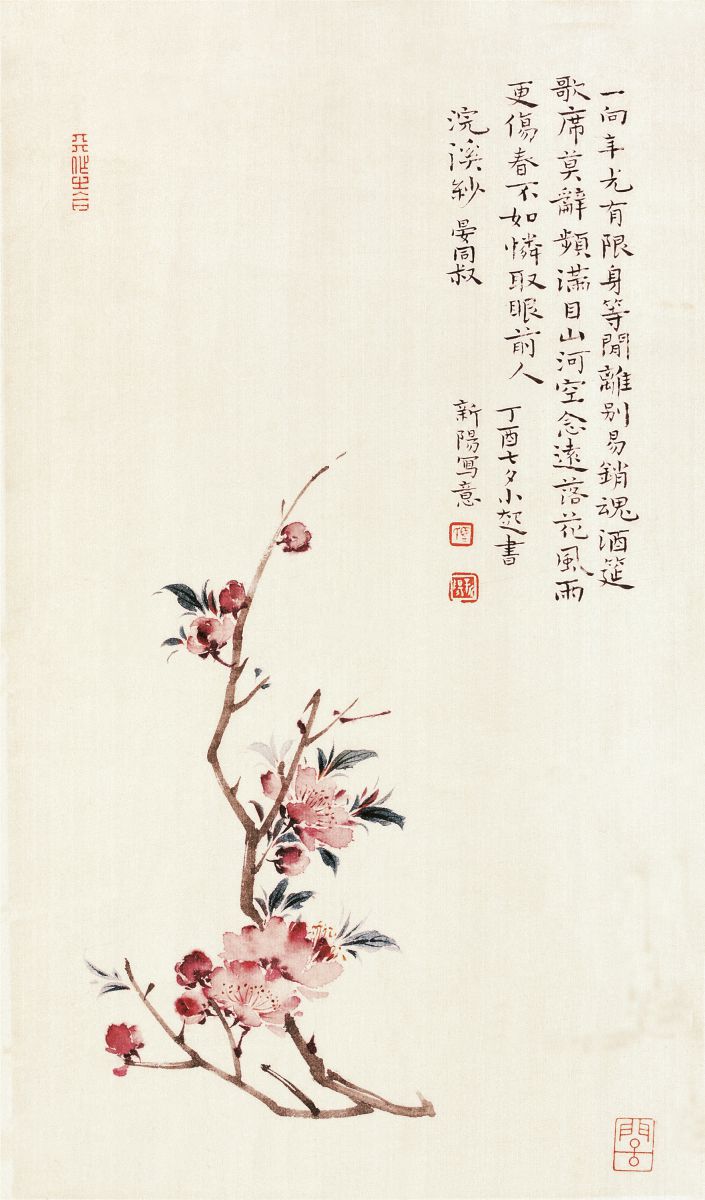 一向年光有限身等閒離別易銷魂酒筵
歌席莫辭頻滿目山河空念遠落花風雨
更傷春不如憐取眼前人
丁酉七夕小起書
浣溪紗 晏同叔
新陽寫意